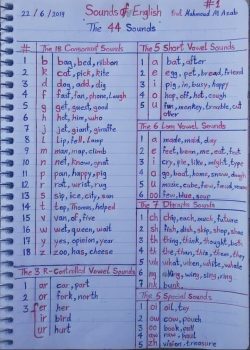 22 / 6 / 2019
Sounds of English
Prof. Mahmoud M. Azab
#1
The 44 Sounds
# The 18 Consonant Sounds
1 b bag, bed, ribbon
2 k cat, pick, kite
3 d dog, add, dig
4 f fast, fan, phone, laugh
5 g get, guest, good
6 h hot, him, who
7 j jet, giant, giraffe
8 l lip, fell, lamp
9 m man, map, climb
10 n net, know, gnat
11 p pan, happy, pig
12 r rat, wrist, rug
13 s sip, ice, city, sun
14 t top, Thomas, helped
15 v van, of, five
16 w wet, queen, wait
17 y yes, opinion, year
18 z zoo, has, cheese
The 3 R-Controlled Vowel Sounds
1 ar car, part
2 or fork, north
3 er her
ir bird
ur hurt
The 5 Short Vowel Sounds
1 a bat, after
2 e egg, pet, bread, friend
3 i pig, in, busy, happy
4 o hop, off, hot, cough
5 u fun, monkey, trouble, cut
other
The 6 Long Vowel Sounds
1 a made, maid, day
2 e feet, bean, me, eat, fast
3 i cry, pie, like, might, type
4 o go, boat, home, snow, dough
5 u music, cube, few, feud, you
6 oo few, blue, soup
The 7 Digraphs Sounds
1 ch chip, each, much, future
2 sh fish, dish, ship, shop, shoe
3 th thing, think, thought, both
4 th the, than, this, them, they
5 wh what, when, white, whale
6 ng ring, wing, sing, ring
7 nk bunk
The 5 Special Sounds
1 oi oil, toy
2 ow cow, pouch
3 oo book, pull
4 aw raw, haul
5 zh vision, treasure